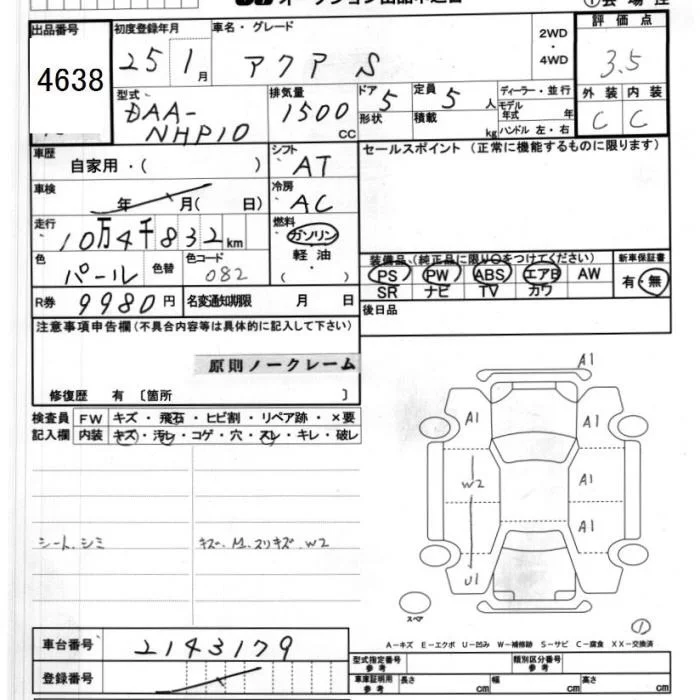 出品番号 初度登録年月 車名・グレード 2WD・4WD 評価点
4638 25 1月 アクア S 3.5
外装 内装
C C
型式 DAA-NHP10 排気量 1500 CC ドア 5 定員 5人 ディーラー・並行
形状 積載 kg モデル年式 年 ハンドル 左・右
車歴 自家用・( ) シフト AT セールスポイント (正常に機能するものに限ります)
車検 年 月( 日) 冷房 AC
走行 10万4千832km 燃料 ガソリン
軽油・( )
色 パール 色替 色コード 082
装備品 (純正品に限り○をつけてください) 新車保証書
PS PW ABS エアB AW 有・無
SR ナビ TV カワ
R券 9980円 名変通知期限 月 日 後日品
注意事項申告欄(不具合内容等は具体的に記入して下さい)
原則ノークレーム
修復歴 有 〔箇所 〕
検査員 FW キズ・飛石・ヒビ割・リペア跡・×要
記入欄 内装 キズ・汚レ・コゲ・穴・スレ・キレ・破レ
A1
A1 A1
W2 A1
A1
U1
シート、シミ キズ、M、スリキズ、W2
スペア
1
A-キズ E-エクボ U-凹み W-補修跡 S-サビ C-腐食 XX-交換済
車台番号 2143179
型式指定番号 参考 類別区分番号 参考
登録番号 車庫証明用 参考 長さ cm 幅 cm 高さ cm